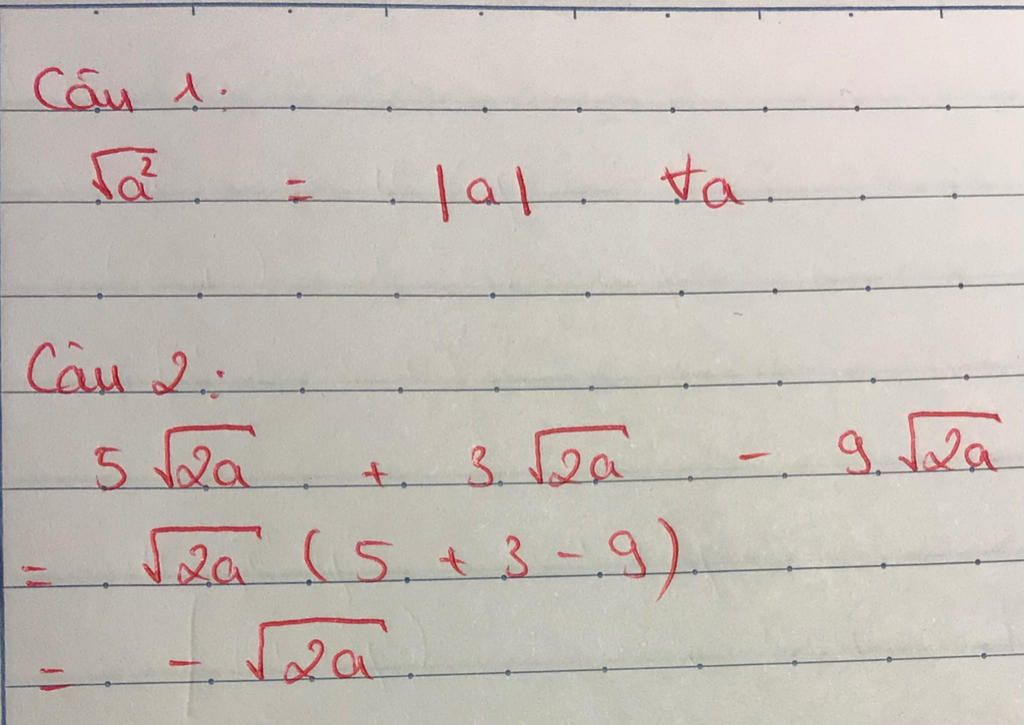 Câu 1:
√a² = |a| ∀a
Câu 2:
5 √2a + 3 √2a - 9 √2a
= √2a (5 + 3 - 9)
= - √2a